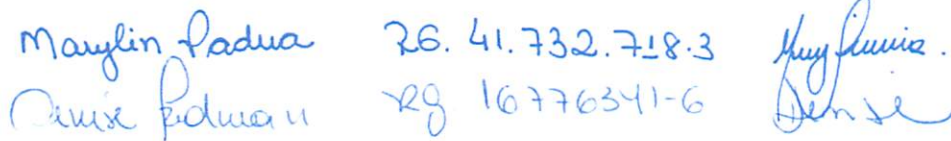 Marylin Padua RG. 41.732.718.3
Denise Fridman Rg 16776341-6 Denise